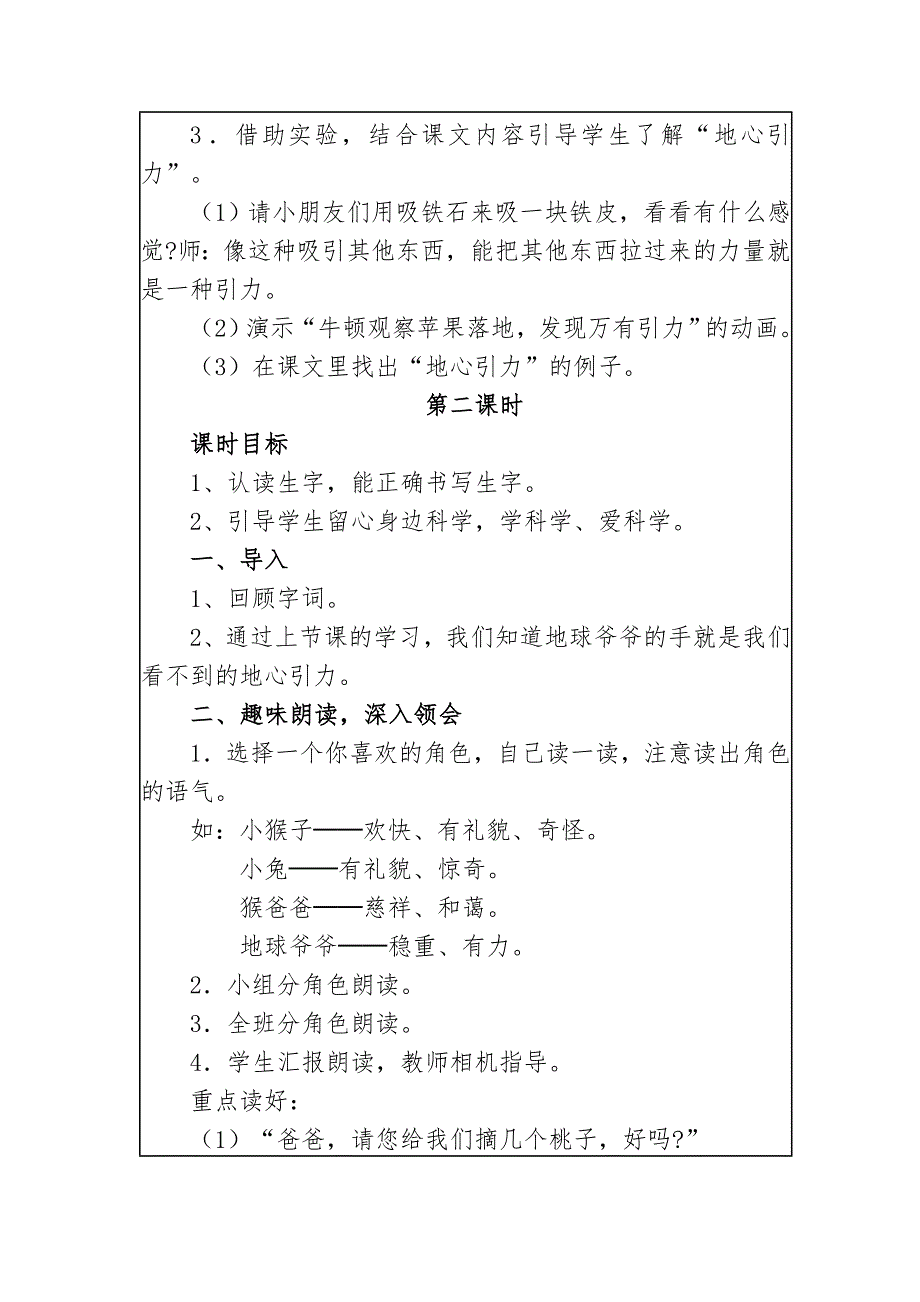 3．借助实验，结合课文内容引导学生了解“地心引
力”。
（1）请小朋友们用吸铁石来吸一块铁皮，看看有什么感
觉?师：像这种吸引其他东西，能把其他东西拉过来的力量就
是一种引力。
（2）演示“牛顿观察苹果落地，发现万有引力”的动画。
（3）在课文里找出“地心引力”的例子。
第二课时
课时目标
1、认读生字，能正确书写生字。
2、引导学生留心身边科学，学科学、爱科学。
一、导入
1、回顾字词。
2、通过上节课的学习，我们知道地球爷爷的手就是我们
看不到的地心引力。
二、趣味朗读，深入领会
1．选择一个你喜欢的角色，自己读一读，注意读出角色
的语气。
如：小猴子——欢快、有礼貌、奇怪。
小兔——有礼貌、惊奇。
猴爸爸——慈祥、和蔼。
地球爷爷——稳重、有力。
2．小组分角色朗读。
3．全班分角色朗读。
4．学生汇报朗读，教师相机指导。
重点读好：
（1）“爸爸，请您给我们摘几个桃子，好吗?”